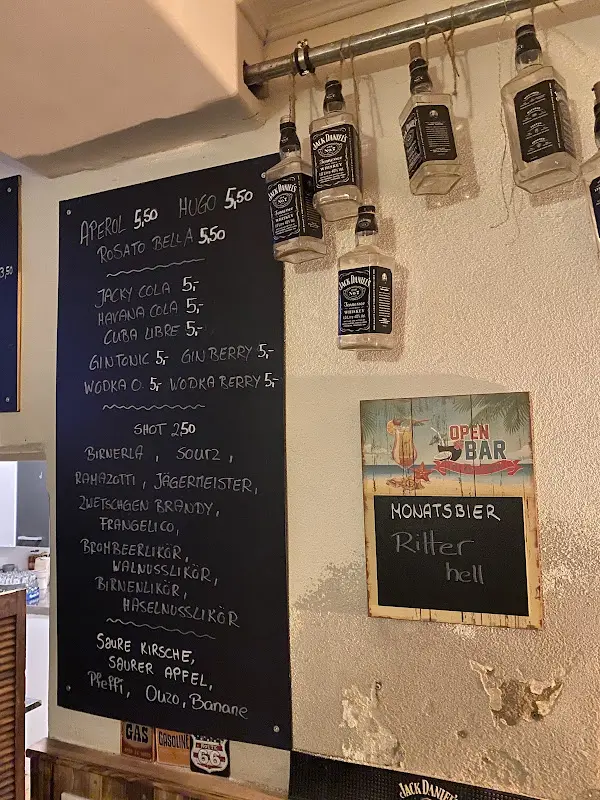 3,50
APEROL 5,50 HUGO 5,50
ROSATO BELLA 5,50
JACKY COLA 5,-
HAVANA COLA 5,-
CUBA LIBRE 5,-
GINTONIC 5,- GIN BERRY 5,-
WODKA O. 5,- WODKA BERRY 5,-
SHOT 2,50
BIRNERLA, SOURZ,
RAMAZOTTI, JÄGERMEISTER,
ZWETSCHGEN BRANDY,
FRANGELICO,
BROMBEERLIKÖR,
WALNUSSLIKÖR,
BIRNENLIKÖR,
HASELNUSSLIKÖR
SAURE KIRSCHE,
SAURER APFEL,
Pfeffi, Ouzo, Banane
GAS
GASOLINE
ROUTE
66
JACK DANIEL'S
Tennessee
WHISKEY
JACK DANIEL'S
Tennessee
WHISKEY
JACK DANIEL'S
Tennessee
WHISKEY
OPEN
BAR
MONATSBIER
Ritter
hell
JACK DANIEL'S